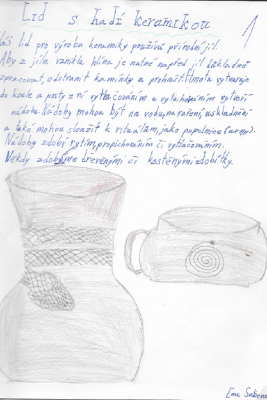 Lid s hadí keramikou
1
Náš lid pro výrobu keramiky používá přírodní jíl.
Aby z jílu vznikla hlína je nutné napřed jíl dokladně
zpracovat, odstranit kamínky a prohníst. Hmota vytvaruje
do koule a prsty z ní vytlačováním a vytahováním vytvoří
nádobu. Nádoby mohou být na vodu, na vaření, uskladnění
a také mohou sloužit k rituálům, jako popelnice (urny).
Nádoby zdobí rytím, propichováním či vytlačováním.
Někdy zdobíme dřevěnými či kostěnými zdobítky.
Ema